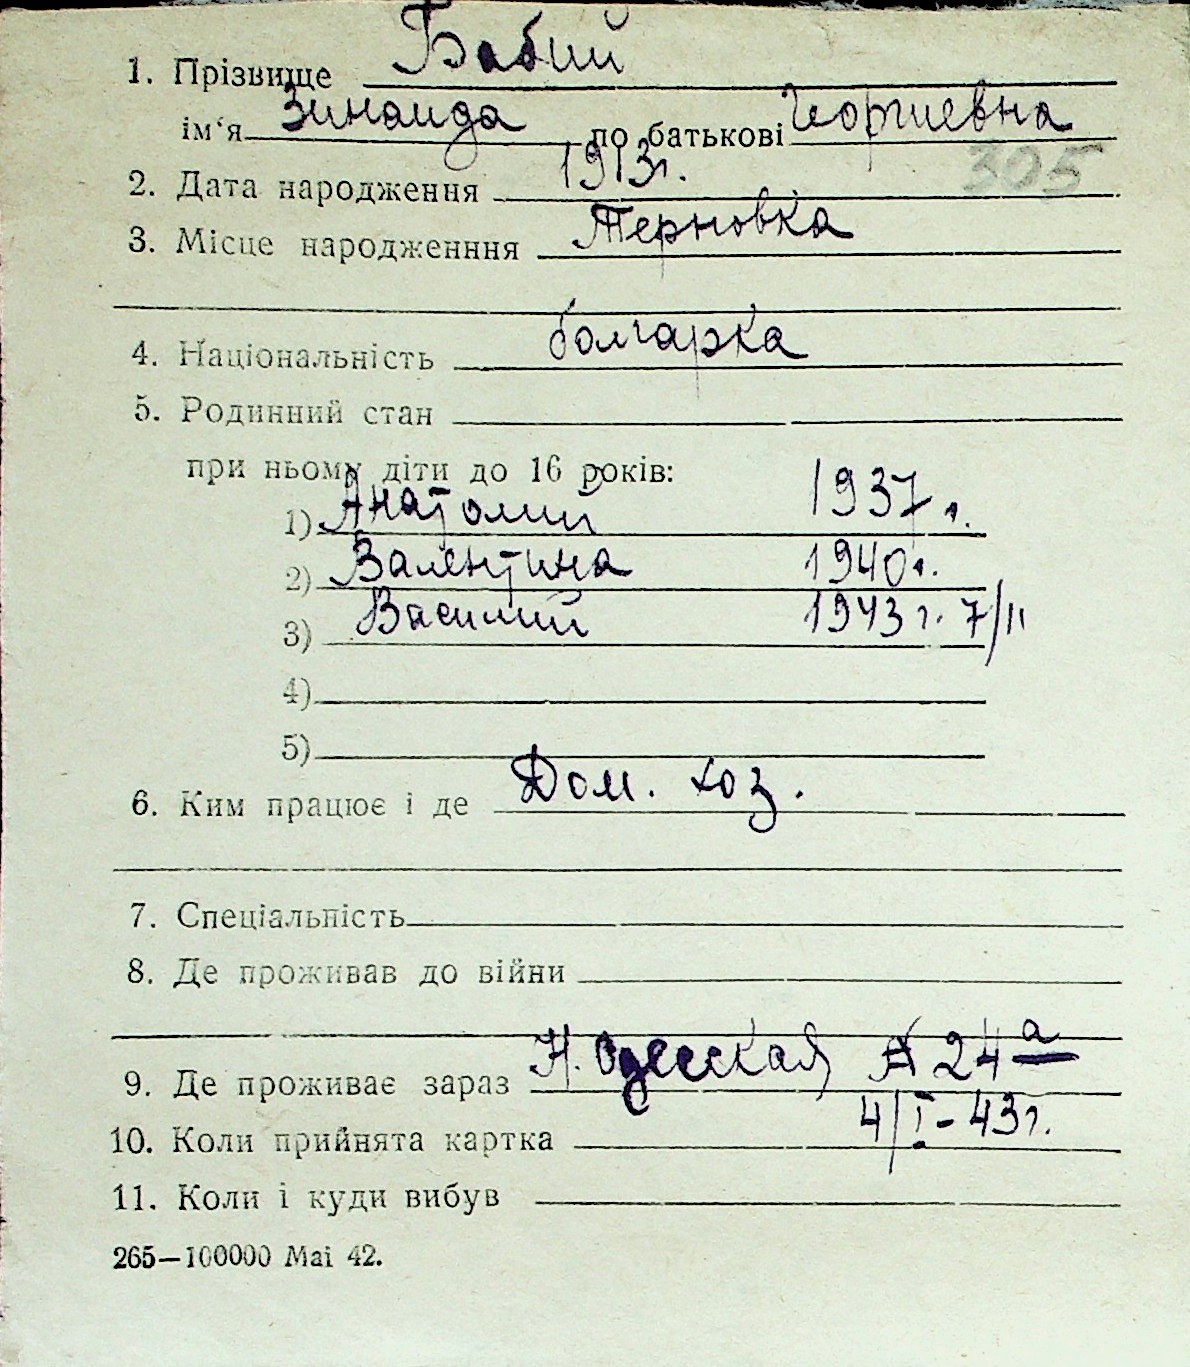 1. Прізвище Бабий
ім‘я Зинаида по батькові Георгиевна
305
2. Дата народження 1913г.
3. Місце народженння Терновка
4. Національність болгарка
5. Родинний стан
при ньому діти до 16 років:
1) Анатолий 1937 г.
2) Валентина 1940г.
3) Василий 1943 г. 7/II
4)
5)
6. Ким працює і де Дом. хоз.
7. Спеціальність
8. Де проживав до війни
9. Де проживає зараз Н. Одесская № 24 а
10. Коли прийнята картка 4/I - 43г.
11. Коли і куди вибув
265—100000 Mai 42.